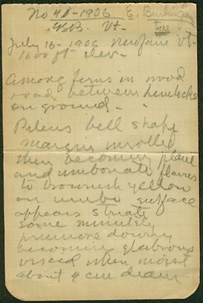 No 41-1906 E. Burlingham
Vt.
July 15-1906 Newfane Vt.
1600 ft. elev.
Among ferns in wood
road between hemlocks
on ground.
Pileus bell shape
margin inrolled
then becoming plane
and umbonate
to brownish yellow
on umbo surface
appears striate
some minutely
downy
becoming glabrous
viscid when moist
about 4 cm diam